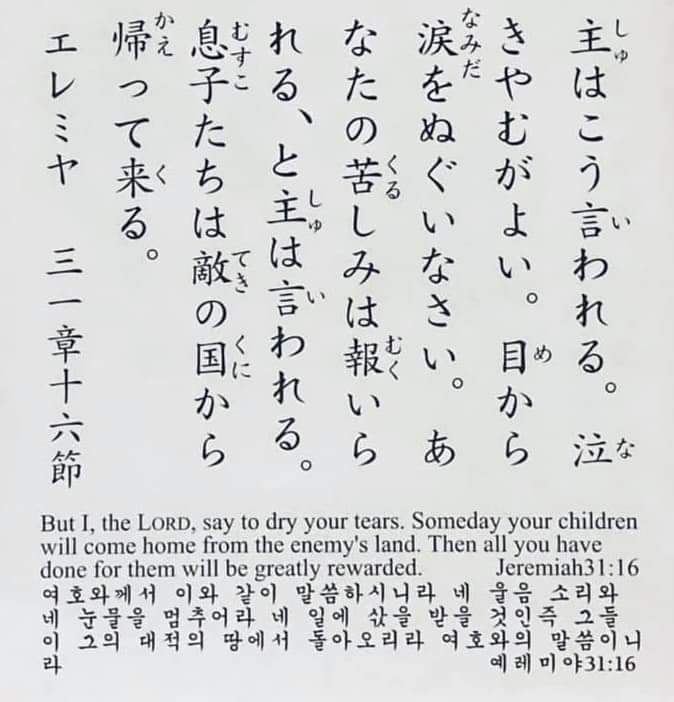 しゅ い な
主はこう言われる。 泣
め
きやむがよい。 目から
なみだ
涙をぬぐいなさい。 あ
くる むく
なたの苦しみは報いら
しゅ い
れる、と主は言われる。
むすこ てき くに
息子たちは敵の国から
かえ く
帰って来る。
エレミヤ 三一章十六節
But I, the LORD, say to dry your tears. Someday your children
will come home from the enemy's land. Then all you have
done for them will be greatly rewarded. Jeremiah31:16
여호와께서 이와 같이 말씀하시니라 네 울음 소리와
네 눈물을 멈추어라 네 일에 삯을 받을 것인즉 그들
이 그의 대적의 땅에서 돌아오리라 여호와의 말씀이니
라 예레미야31:16